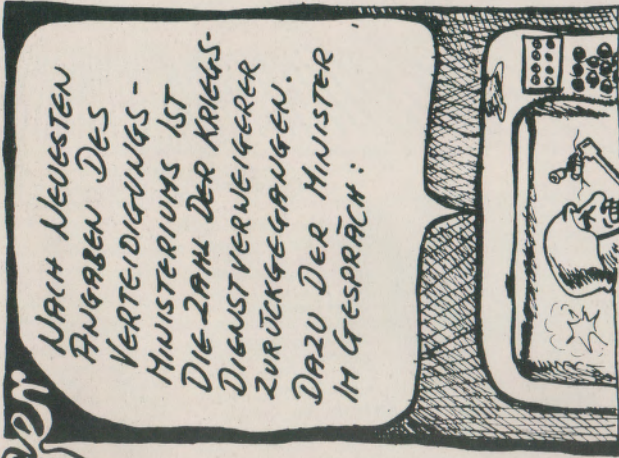 NACH NEUESTEN
ANGABEN DES
VERTEIDIGUNGS-
MINISTERIUMS IST
DIE ZAHL DER KRIEGS-
DIENSTVERWEIGERER
ZURÜCKGEGANGEN.
DAZU DER MINISTER
IM GESPRÄCH: